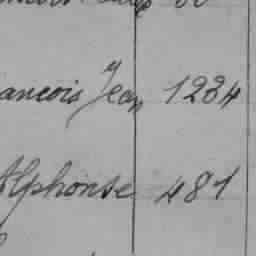 ancois Jean 1234
Alphonse 481